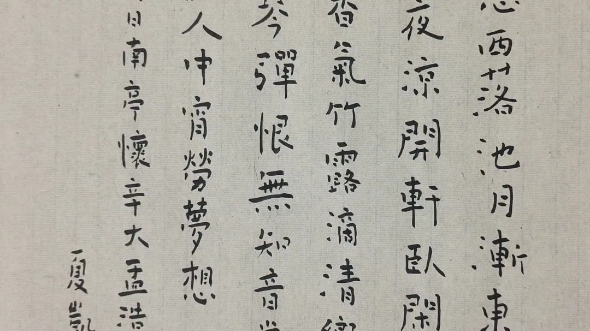 忽西落池月漸東
夜涼開軒臥閑
香氣竹露滴清響
琴彈恨無知音賞
人中宵勞夢想
日南亭懷辛大孟浩
夏凱